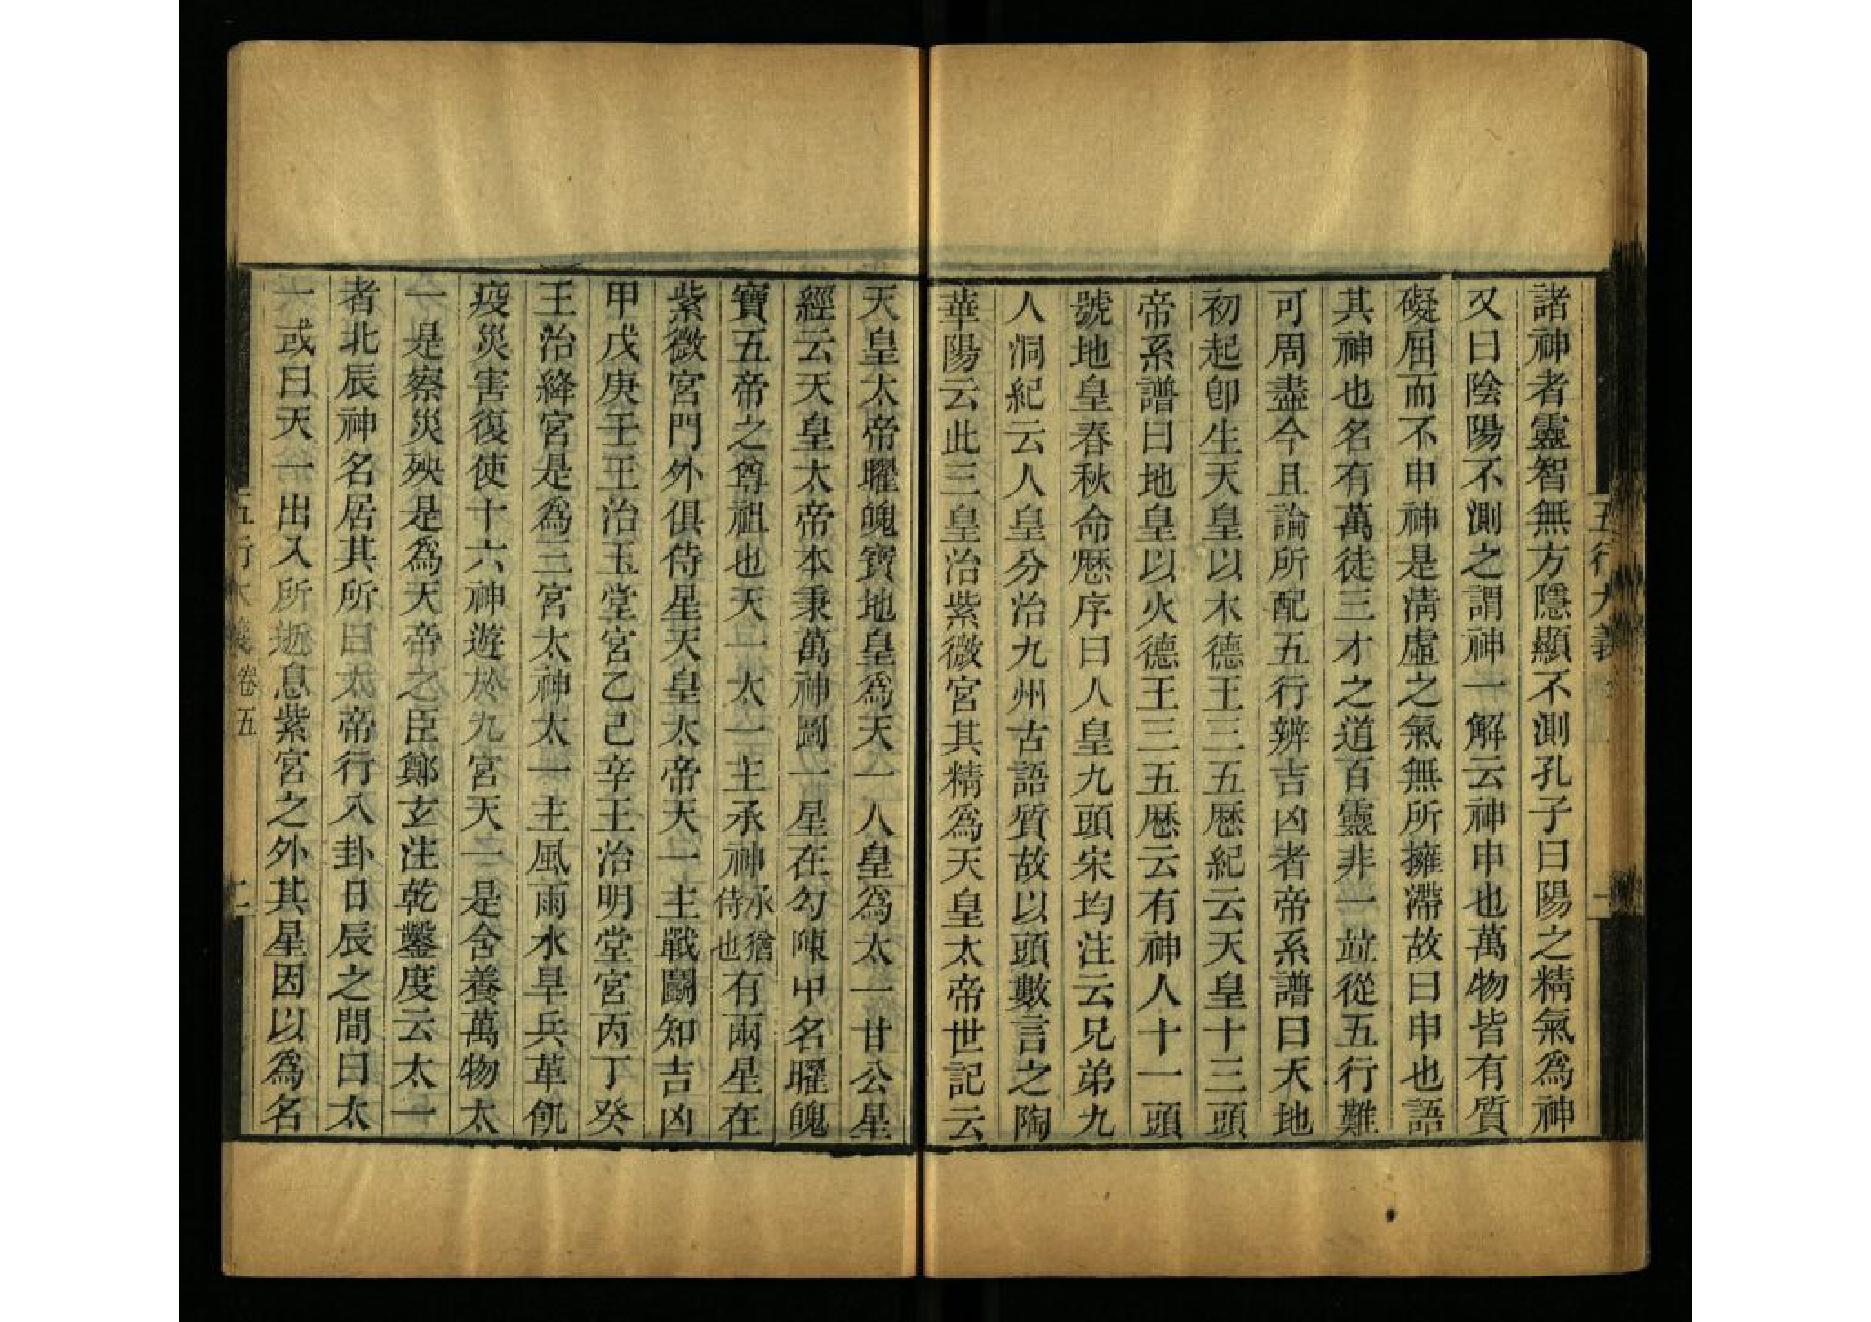 諸神者靈智無方隱顯不測孔子曰陽之精氣爲神
又曰陰陽不測之謂神一解云神申也萬物皆有質
礙屈而不申神是清虛之氣無所擁滯故曰申也語
其神也名有萬徒三才之道百靈非一竝從五行難
可周盡今且論所配五行辨吉凶者帝系譜曰天地
初起卽生天皇以木德王三五厯紀云天皇十三頭
帝系譜曰地皇以火德王三五厯云有神人十一頭
號地皇春秋命厯序曰人皇九頭宋均注云兄弟九
人洞紀云人皇分治九州古語質故以頭數言之陶
華陽云此三皇治紫微宮其精爲天皇太帝世記云
天皇太帝曜魄寶地皇爲天一人皇爲太一甘公星
經云天皇太帝本秉萬神圖一星在勾陳中名曜魄
寶五帝之尊祖也天一太一主承神承猶侍也有兩星在
紫微宮門外俱侍星天皇太帝天一主戰鬭知吉凶
甲戊庚壬王治玉堂宮乙己辛王治明堂宮丙丁癸
王治絳宮是爲三宮太神太一主風雨水旱兵革飢
疫災害復使十六神遊於九宮天一是含養萬物太
一是察災殃是爲天帝之臣鄭玄注乾鑿度云太一
者北辰神名居其所曰太帝行入卦日辰之間曰太
一或曰天一出入所遊息紫宮之外其星因以爲名
五行大義
一
五行大義 卷五
二